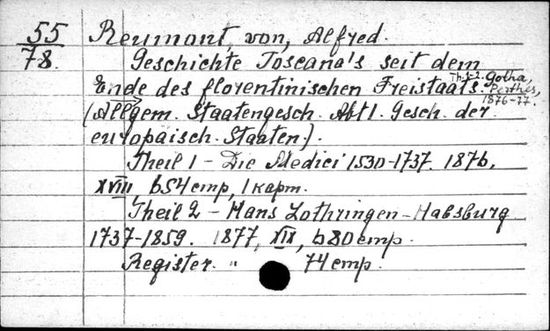 55 Reumont, von, Alfred.
78. Geschichte Toscana's seit dem
Ende des florentinischen Freistaats. Th. 1-2. Gotha,
Perthes,
1876-77.
(Allgem. Staatengesch. Abt I. Gesch. der
europäisch. Staaten).
Theil 1 - Die Medici 1530-1737. 1876.
XVIII 654 стр, 1 карт.
Theil 2 - Haus Lothringen-Habsburg
1737-1859. 1877, XIX, 680 стр.
Register. " 74 стр.